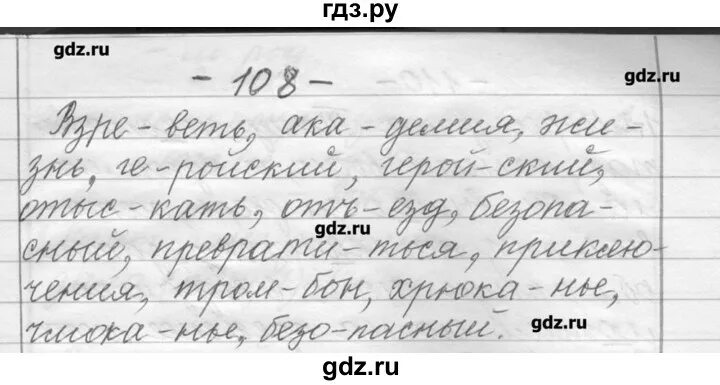 гдз.ру
gdz.ru
gdz.ru
- 108 -
Взре-веть, ака-демия, жи-
знь, ге-ройский, герой-ский,
отыс-кать, отъ-езд, безопа-
gdz.ru
сный, преврати-ться, приклю-
чения, тром-бон, хрюка-нье,
чмока-нье, безо-пасный.
gdz.ru
gdz.ru